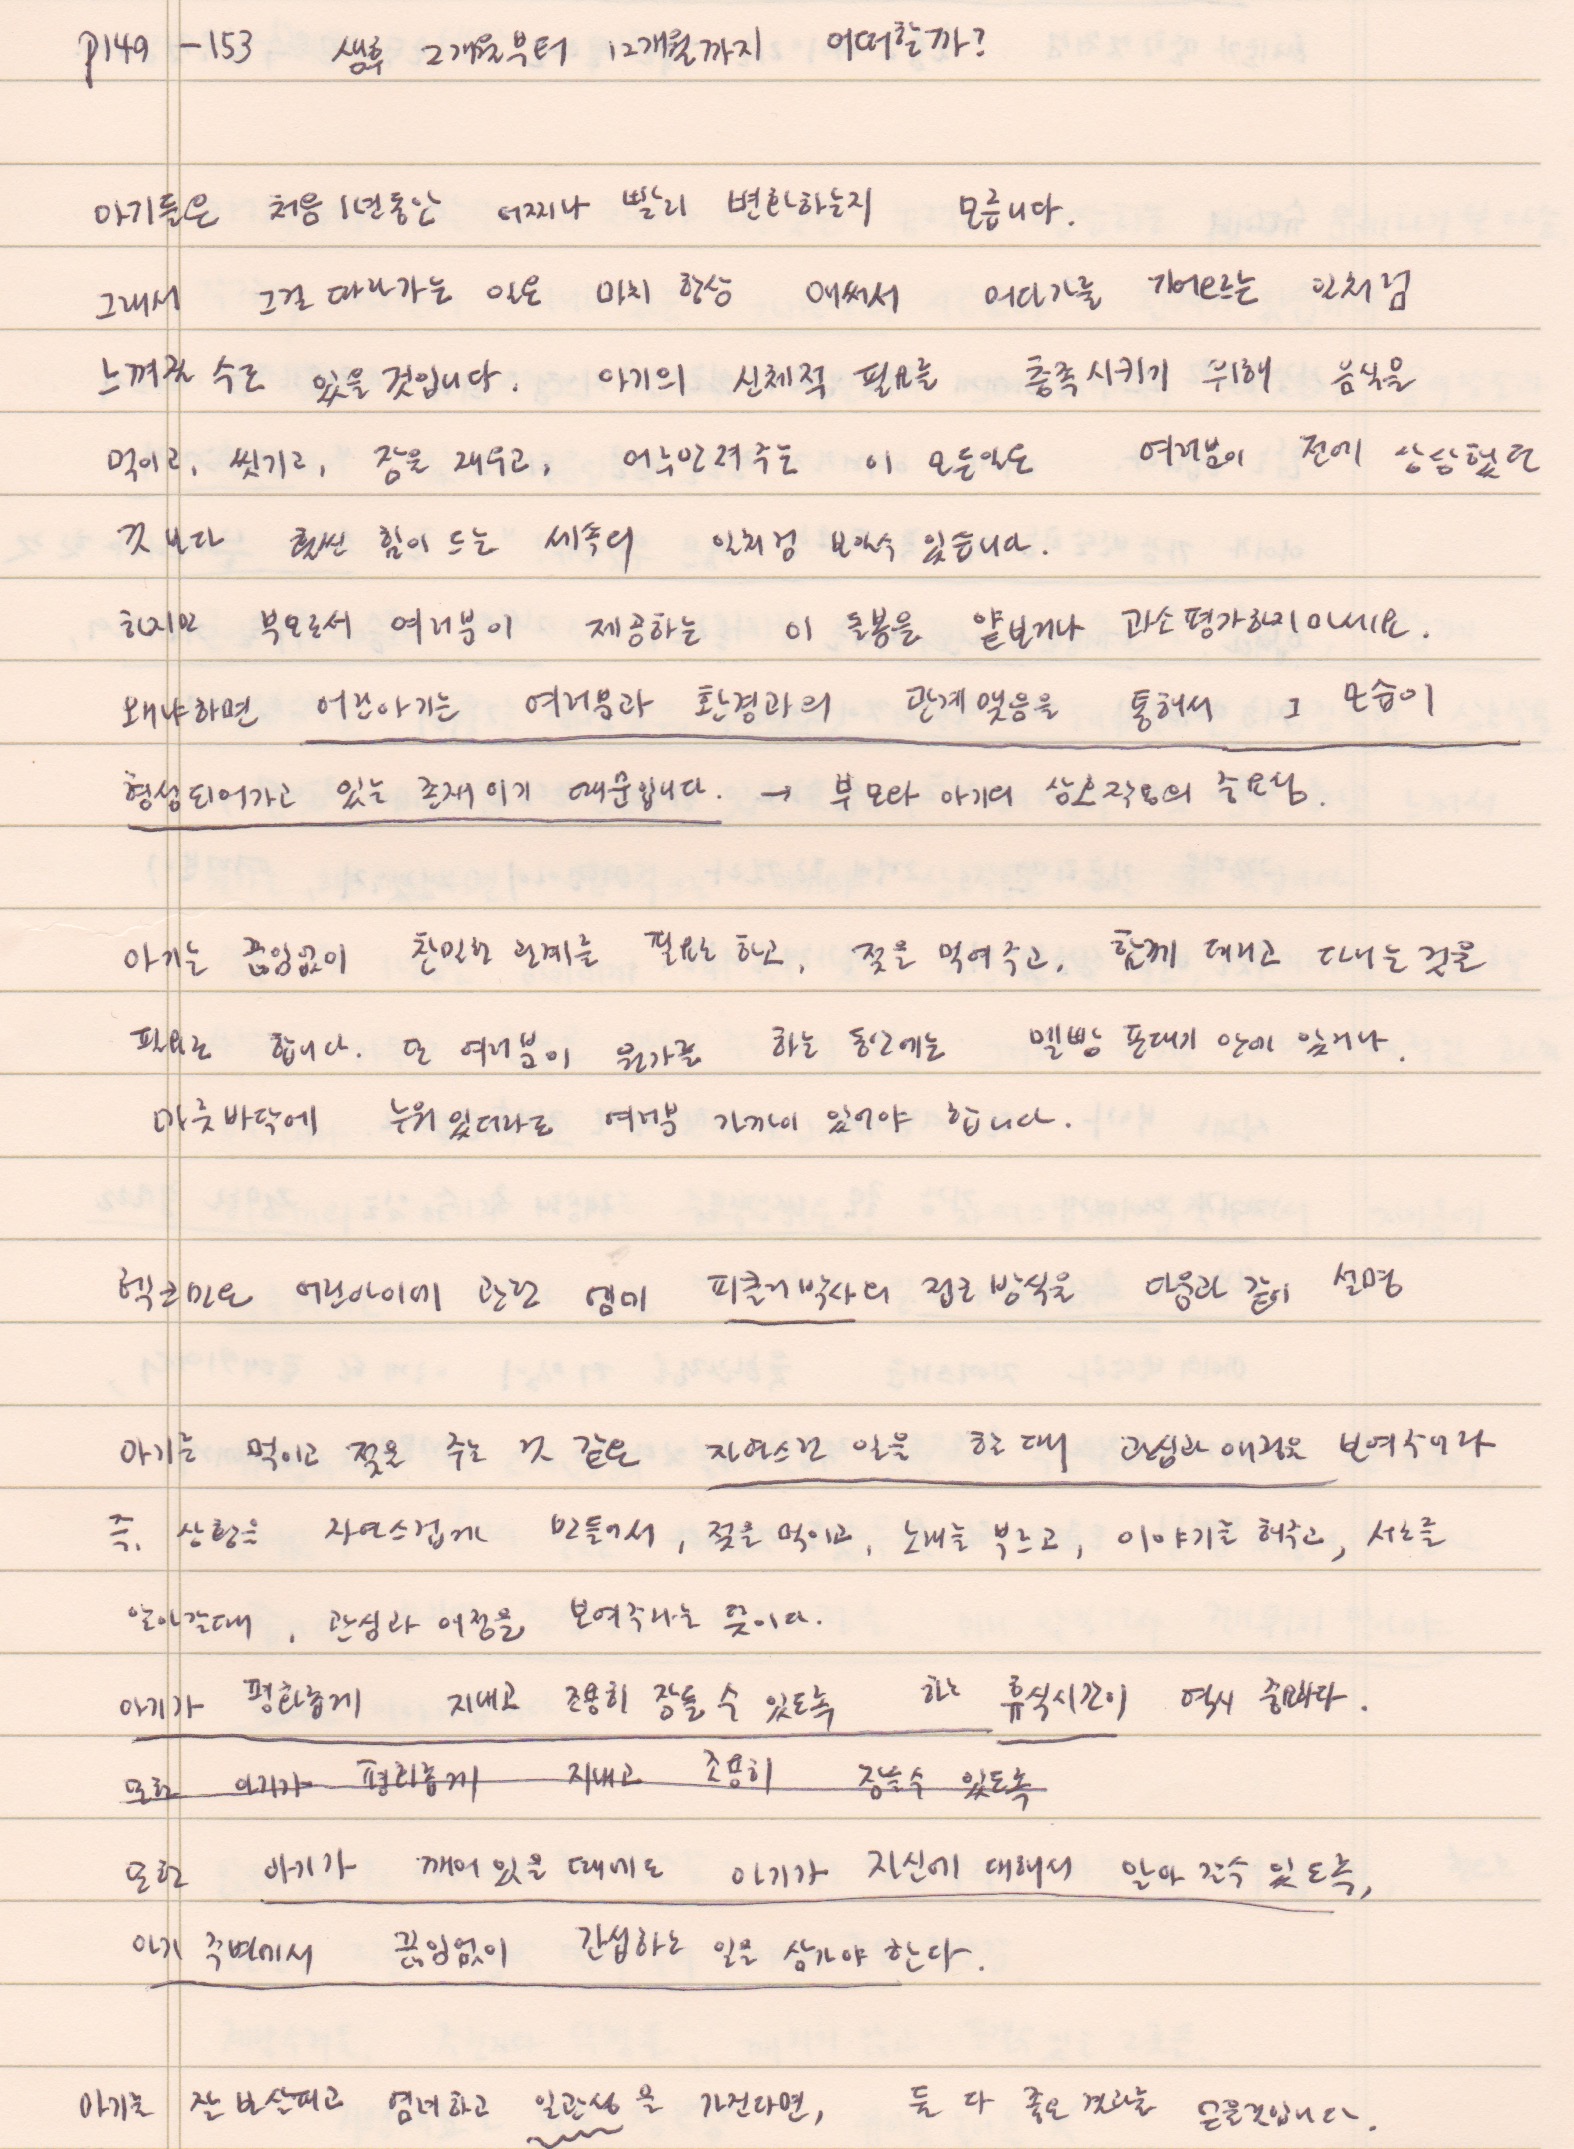 p149 - 153 생후 2개월부터 12개월까지 어떠할까?
아기들은 처음 1년동안 어찌나 빨리 변화하는지 모릅니다.
그래서 그걸 따라가는 일은 마치 항상 애써서 어딘가를 기어오르는 일처럼
느껴질 수도 있을 것입니다. 아기의 신체적 필요를 충족시키기 위해 음식을
먹이고, 씻기고, 잠을 재우고, 어루만져주는 이 모든일은 여러분이 전에 상상했던
것 보다 훨씬 힘이 드는 세속의 일처럼 보일수 있습니다.
하지만 부모로서 여러분이 제공하는 이 돌봄을 얕보거나 과소평가하지마세요.
왜냐하면 어린아기는 여러분과 환경과의 관계맺음을 통해서 그 모습이
형성되어가고 있는 존재이기 때문입니다. → 부모와 아기의 상호작용의 중요성.
아기는 끊임없이 친밀한 관계를 필요로 하고, 젖을 먹여주고, 함께 데리고 다니는 것을
필요로 합니다. 또 여러분이 뭔가를 하는 동안에는 멜빵 포대기 안에 있거나,
마룻바닥에 누워있더라도 여러분 가까이 있어야 합니다.
어린아이에 관한 엠미 피클러박사의 접근방식을 다음과 같이 설명
아기를 먹이고 젖을 주는 것 같은 자연스런 일을 할 때 관심과 애정을 보여주어라
즉, 상황을 자연스럽게 만들어서, 젖을 먹이고, 노래를 부르고, 이야기를 해주고, 서로를
알아갈때, 관심과 애정을 보여주라는 뜻이다.
아기가 평화롭게 지내고 조용히 잠들 수 있도록 하는 휴식시간이 역시 중요하다.
또한 아기가 평화롭게 지내고 조용히 잠들수 있도록
또한 아기가 깨어 있을 때에도 아기가 자신에 대해서 알아 갈수 있도록,
아기 주변에서 끊임없이 간섭하는 일을 삼가야 한다.
아기를 잘 보살피고 염려하고 일관성을 가진다면, 둘 다 좋은 결과를 얻을것입니다.